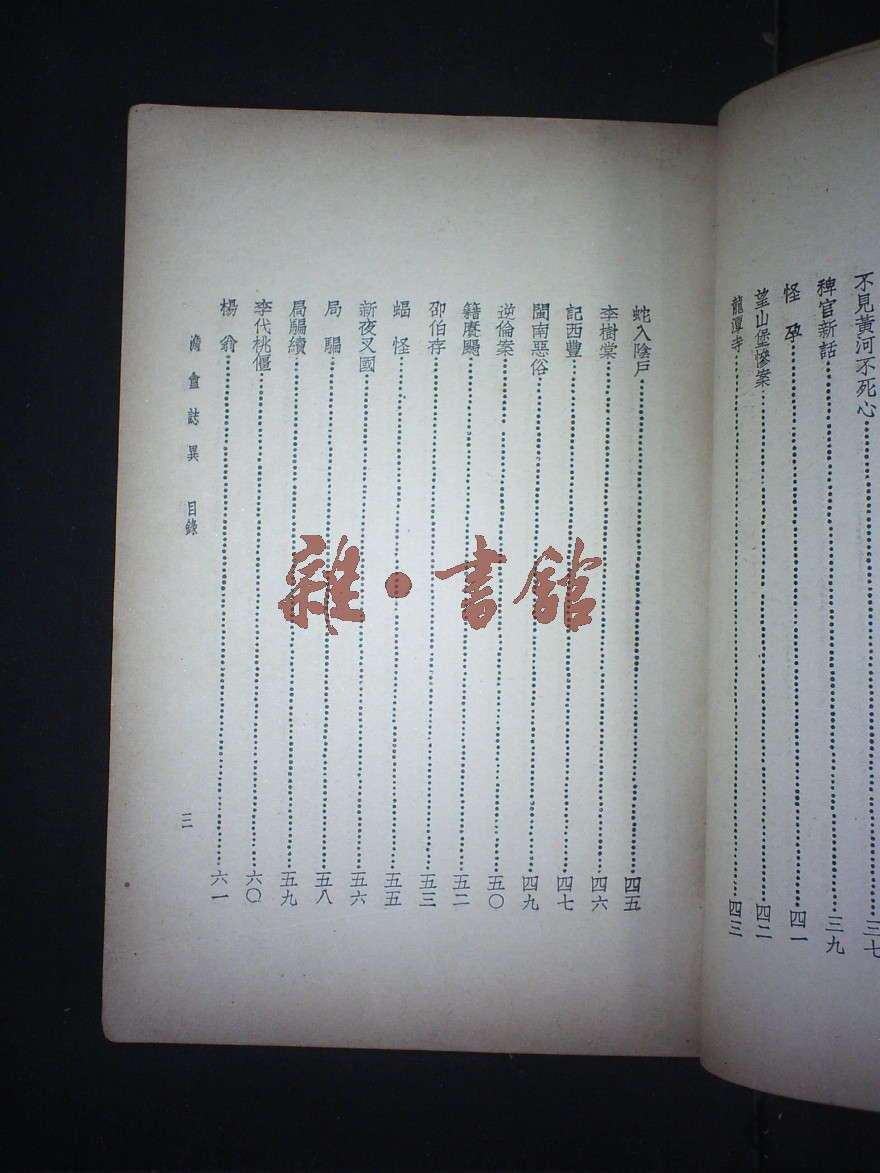 不見黃河不死心……三七
稗官新話……三九
怪孕……四一
望山堡慘案……四二
龍潭寺……四三
蛇入陰戶……四五
李樹棠……四六
記西豐……四七
閩南惡俗……四九
逆倫案……五〇
籍賡颺……五二
邵伯存……五三
蝠怪……五五
新夜叉國……五六
局騙……五八
局騙續……五九
李代桃僵……六〇
楊翁……六一
誌異 目錄 三
雜·書館